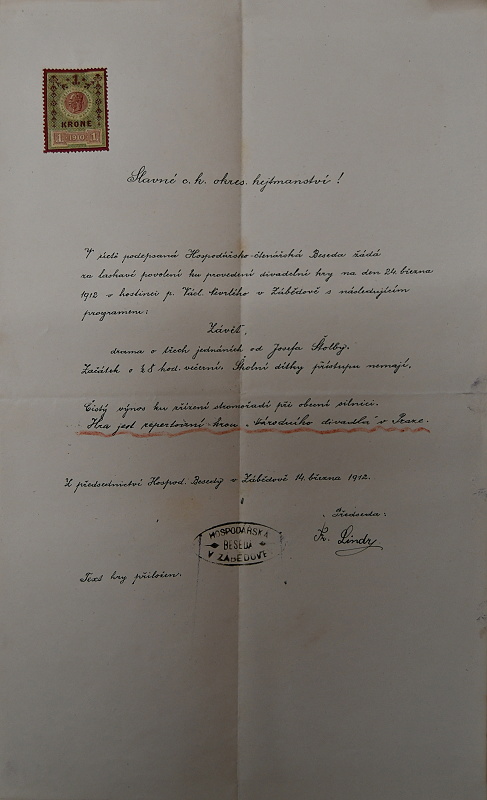 1
KRONE
1 1910 1
Slavné c. k. okres. hejtmanství!
V úctě podepsaná Hospodářsko-čtenářská Beseda žádá
za laskavé povolení ku provedení divadelní hry na den 24. března
1912 v hostinci p. Václ. v Zábědově s následujícím
programem:
Závěť,
drama o třech jednáních od Josefa Štolby.
Začátek o hod. večerní. Školní dítky přístupu nemají.
Čistý výnos ku zřízení stromořadí při obecní silnici.
Hra jest repertoirní hrou "Národního divadla" v Praze.
Z předsednictví Hospod. Besedy v Zábědově 14. března 1912.
Předseda:
Fr. Lindr
HOSPODÁŘSKÁ
BESEDA
V ZÁBĚDOVĚ
Text hry přiložen.